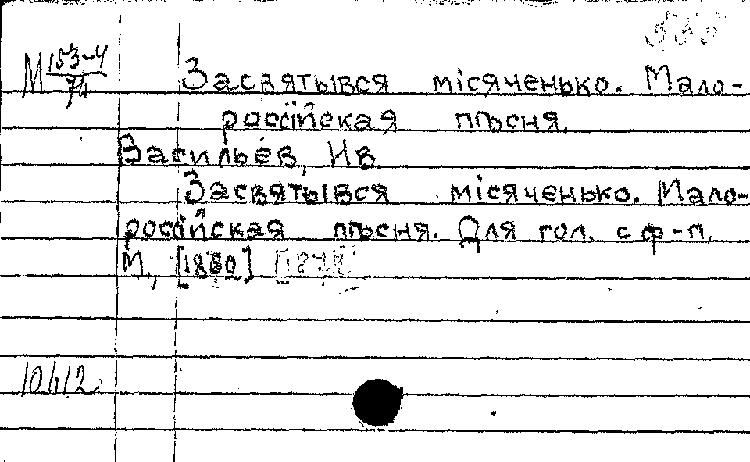 М 153-4/74 Засвятывся місяченько. Мало-
російская пѣсня.
Васильев, Ив.
Засвятывся місяченько. Мало-
російская пѣсня. Для гол. с ф-п.
М., [1880]